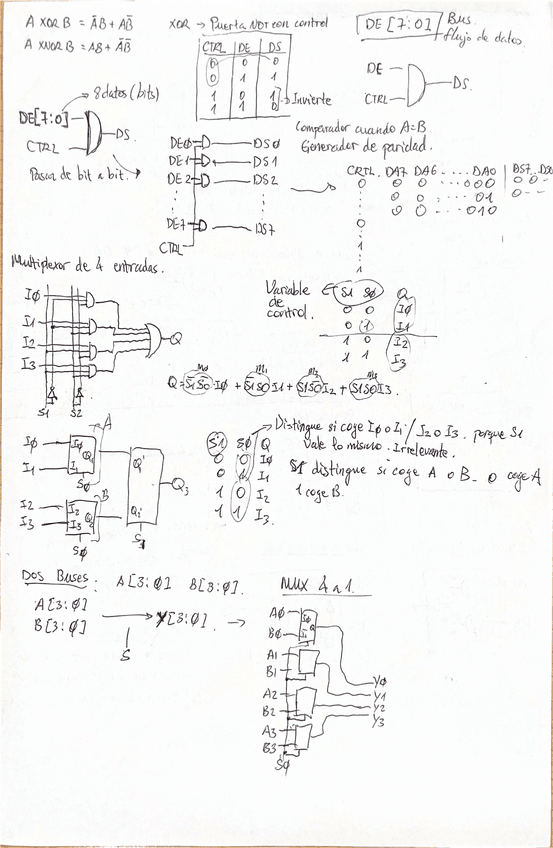 A XOR B = ĀB + AB̄
A XNOR B = AB + ĀB̄
XOR → Puerta NOT con control
CTRL DE DS
0 0 0
0 1 1
1 0 1
1 1 0
→ Invierte
DE [7:0] Bus.
flujo de datos.
DE
CTRL
DS.
→ 8 datos (bits)
DE[7:0]
CTRL
DS.
Pasar de bit a bit.
DE0 DS0
DE1 DS1
DE2 DS2
DE7 DS7
CTRL
Comparador cuando A=B.
Generador de paridad.
CRTL. DA7 DA6 ..... DA0 DS7
0 0 0 ....000 0 0 -
0 0 ..... 01 0 - -
0 0 ..... 010
0
1
1
Multiplexor de 4 entradas.
I0
I1
I2
I3
Q
S1 S2
Variable de control.
S1 S0 Q
0 0 I0
0 1 I1
1 0 I2
1 1 I3
Q = S̄1S̄0 I0 + S̄1S0 I1 + S1S̄0 I2 + S1S0 I3.
A
I0 I0
I1 I1
S0
B
I2 I2
I3 I3
S0
Q3
S1
S1 S0 Q
0 0 I0
0 1 I1
1 0 I2
1 1 I3.
→ Distingue si coge I0 o I1 / I2 o I3. porque S1
vale lo mismo. Irrelevante.
S1 distingue si coge A o B. 0 coge A
1 coge B.
Dos Buses: A[3:0] B[3:0].
A[3:0]
B[3:0] → Y[3:0]. →
S
MUX 4 a 1.
A0
B0
A1
B1
A2
B2
A3
B3
S0
Y0
Y1
Y2
Y3